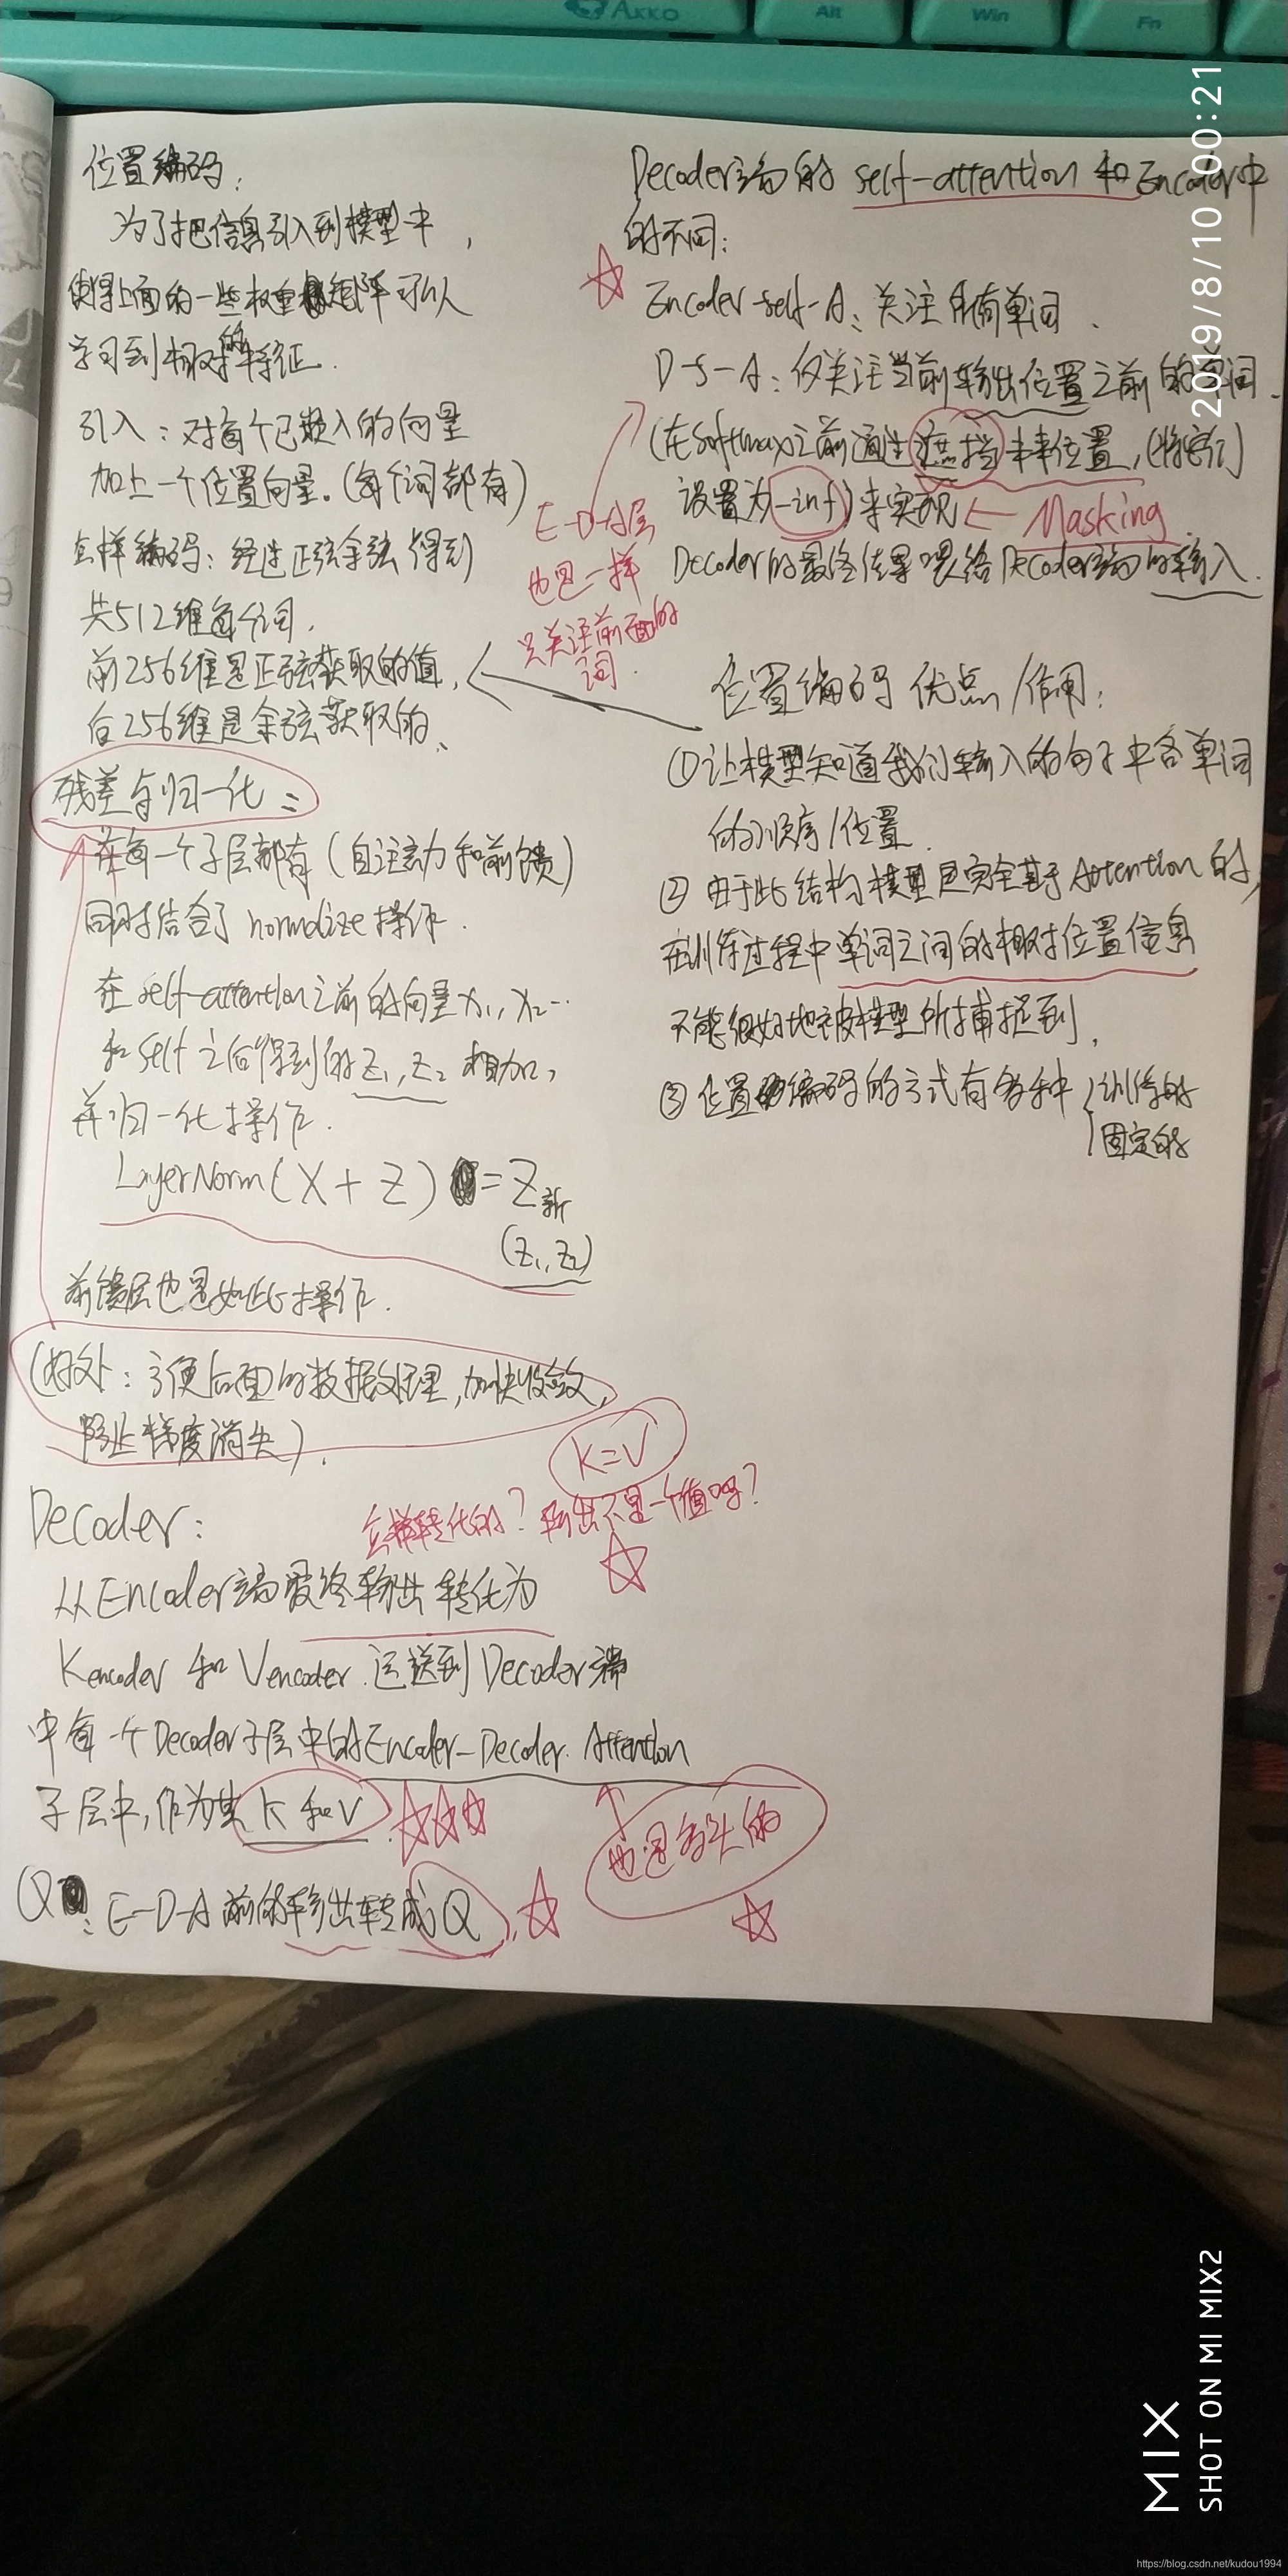 AKKO
Alt
Win
Fn
2019/8/10 00:21
位置编码:
为了把信息引入到模型中,
使得上面的一些权重矩阵可以
学习到相对的特征.
引入:对每个已嵌入的向量
加上一个位置向量。(每个词都有)
怎样编码:经过正弦余弦得到
共512维每个词.
前256维是正弦获取的值,
后256维是余弦获取的、
残差与归一化:
在每一个子层都有(自注意力和前馈)
同时结合了normalize操作.
在self-attention之前的向量X₁,X₂…
和self之后得到的Z₁,Z₂相加,
并归一化操作.
LayerNorm(X+Z)=Z新
(Z₁,Z₂)
前馈层也是如此操作.
(好处:方便后面的数据处理,加快收敛,
防止梯度消失).
K=V
Decoder:
怎样转化的?输出不是一个值吗?
从Encoder端最终输出转化为
Kencoder和Vencoder.运送到Decoder端
中每一个Decoder子层中的Encoder-Decoder Attention
子层中,作为其K和V.
也是多头的
Q:E-D-A前的输出转成Q.
Decoder端的self-attention和Encoder中
的不同:
Encoder-self-A:关注所有单词.
D-S-A:仅关注当前输出位置之前的单词.
(在softmax之前通过遮挡未来位置,(将它们
设置为-inf)来实现 Masking
E-D-A层
也是一样
只关注前面的
词.
Decoder的最终结果喂给Decoder端的输入.
位置编码优点/作用:
①让模型知道我们输入的句子中各单词
的顺序/位置.
②由于此结构模型是完全基于Attention的,
在训练过程中单词之间的相对位置信息
不能很好地被模型所捕捉到,
③位置编码的方式有多种 训练的
固定的
MIX
SHOT ON MI MIX2
https://blog.csdn.net/kudou1994